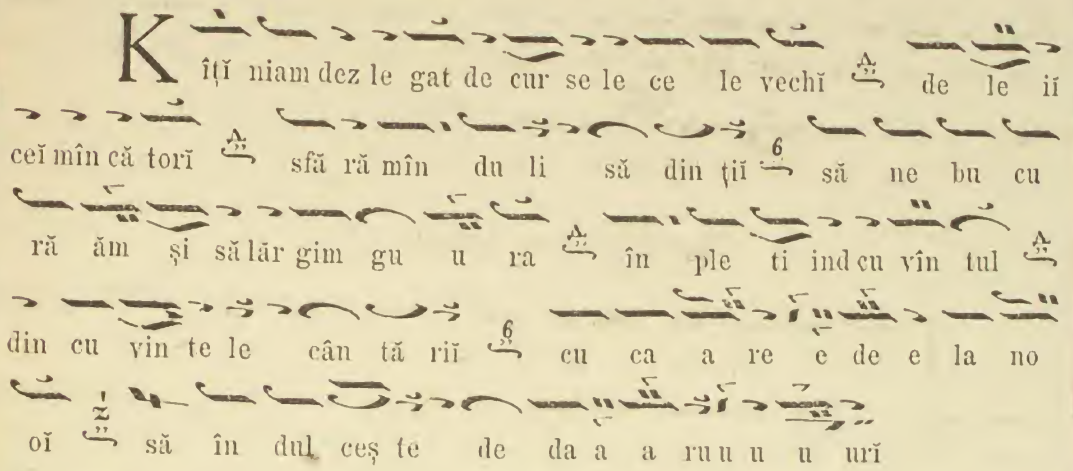 Kîțĭ niam dez le gat de cur se le ce le vechĭ de le iĭ
ceĭ mîn că torĭ sfă ră mîn du li să din țiĭ să ne bu cu
ră ăm și să lăr gim gu u ra în ple ti ind cu vîn tul
din cu vin te le cân tă riĭ cu ca a re e de e la no
oĭ să în dul ceș te de da a a ru u u u urĭ